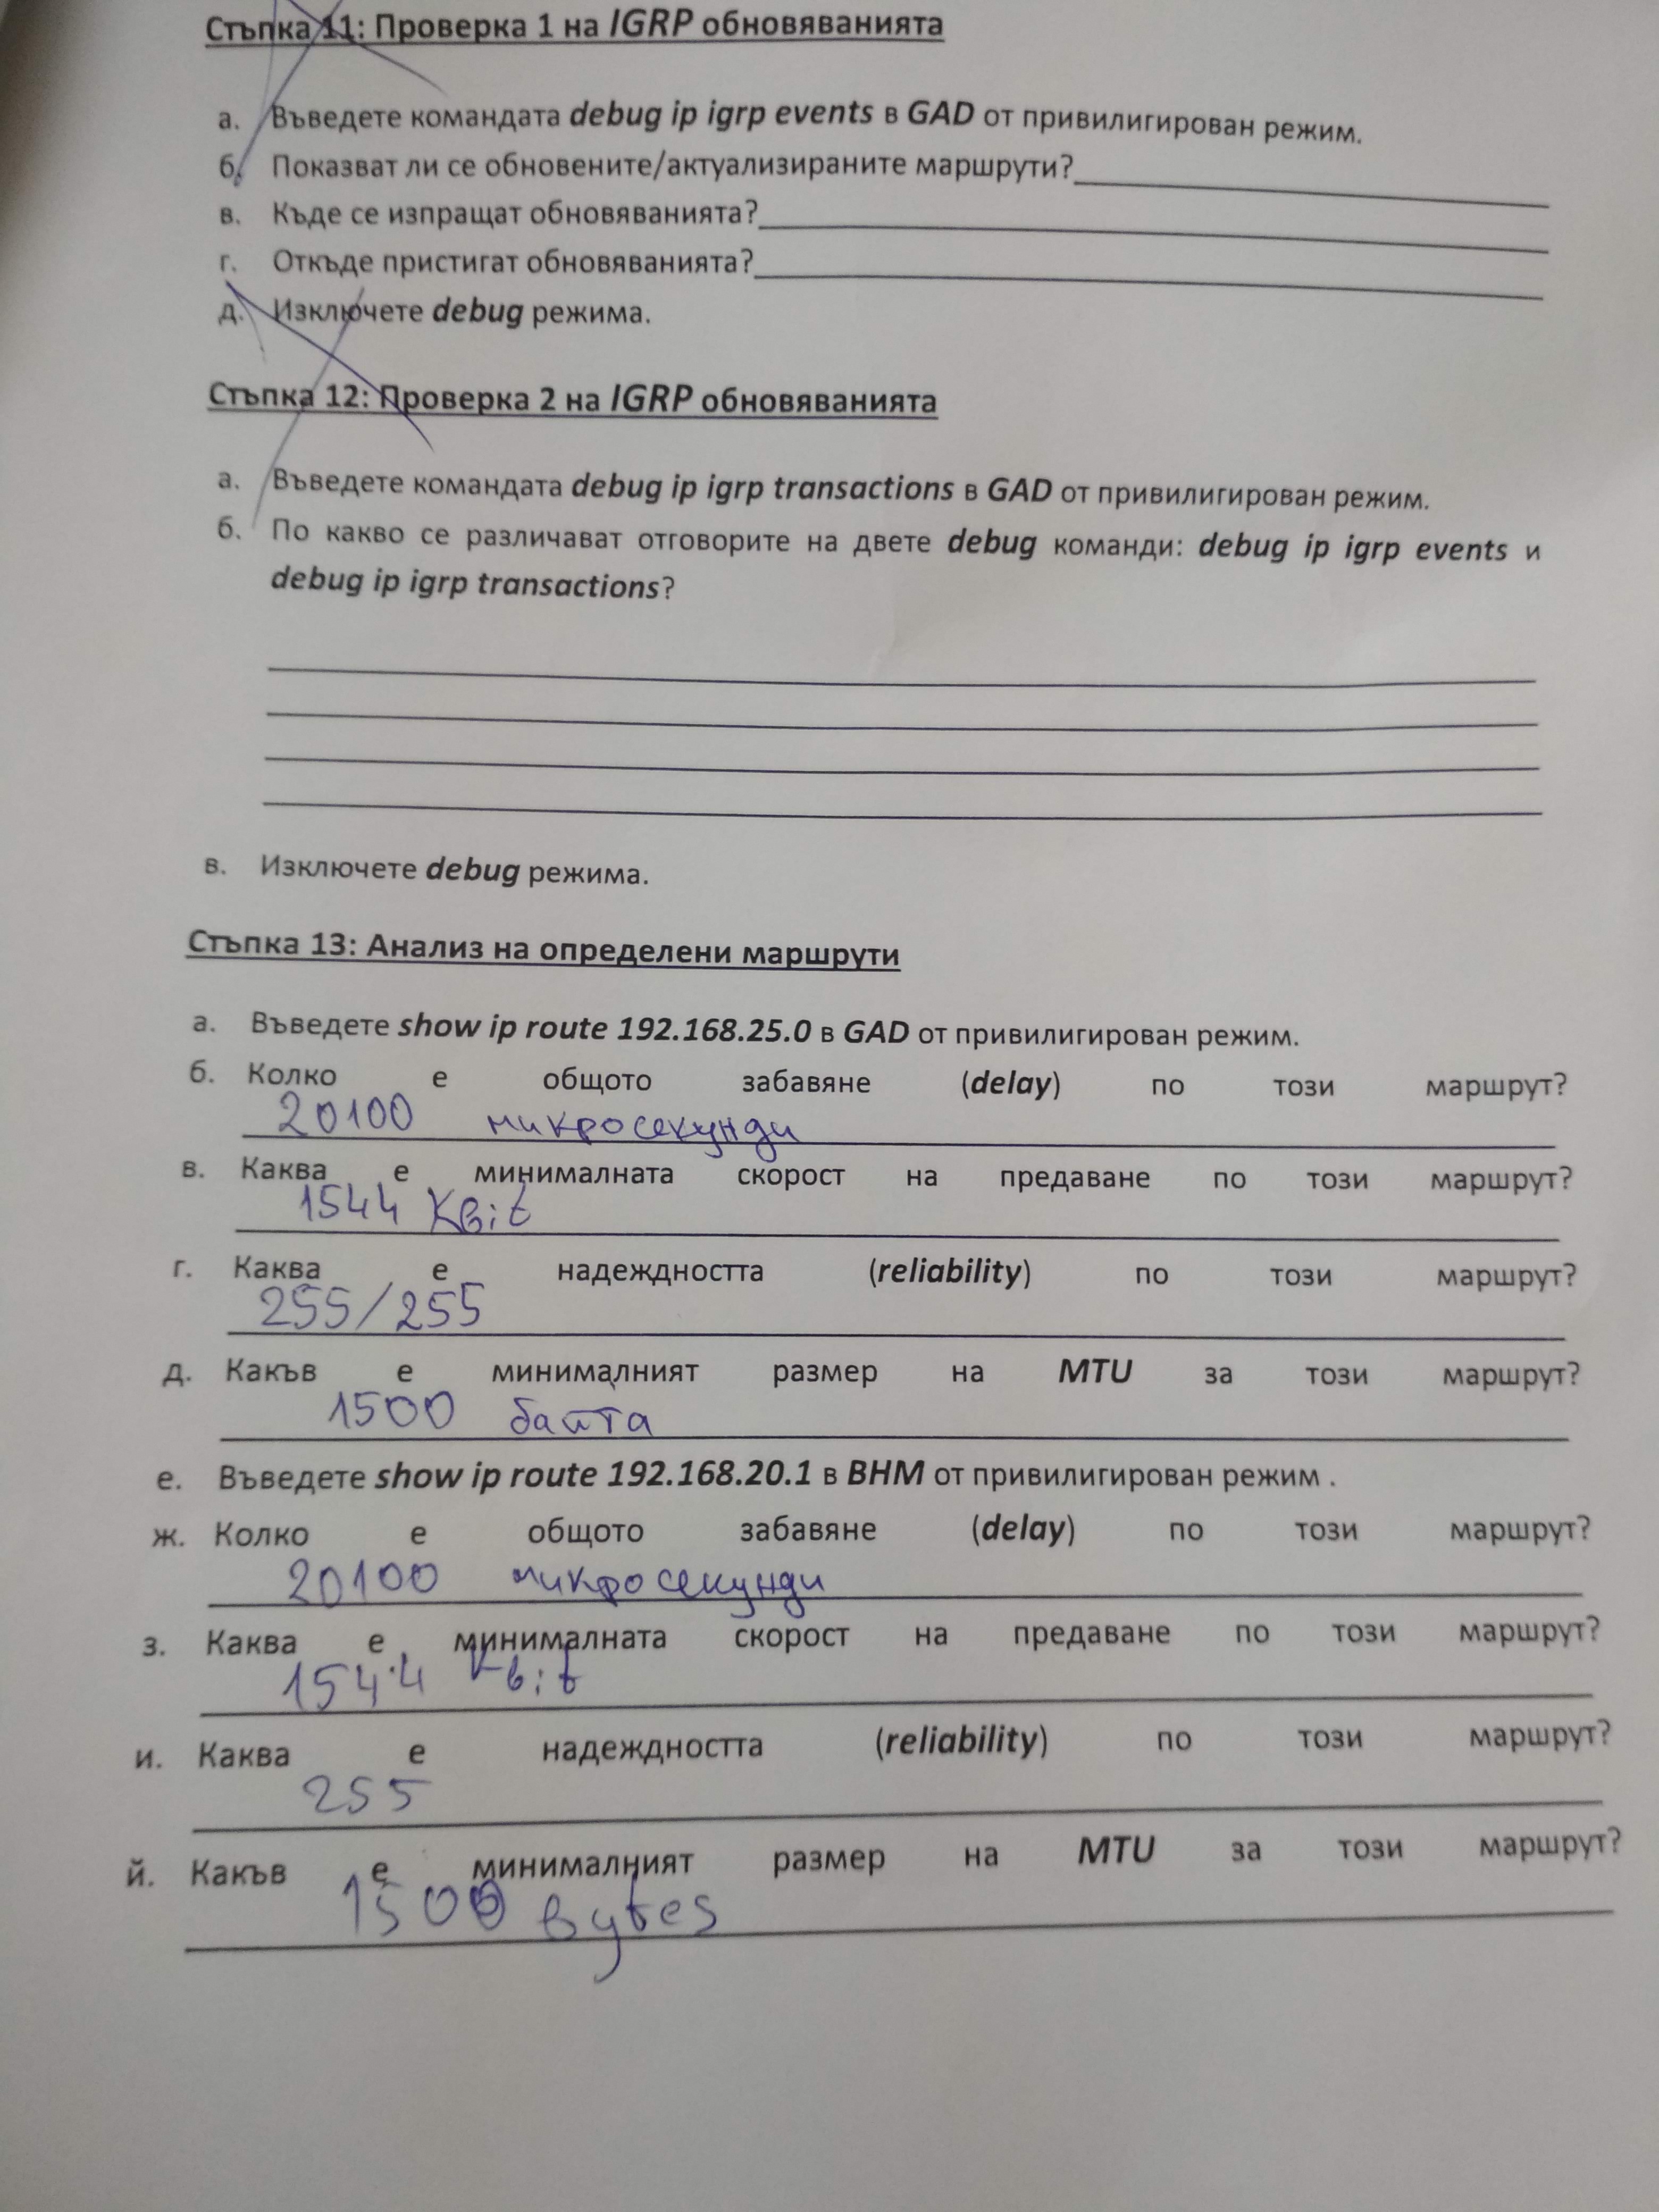 Стъпка 11: Проверка 1 на IGRP обновяванията
а. Въведете командата debug ip igrp events в GAD от привилигирован режим.
б. Показват ли се обновените/актуализираните маршрути?
в. Къде се изпращат обновяванията?
г. Откъде пристигат обновяванията?
д. Изключете debug режима.
Стъпка 12: Проверка 2 на IGRP обновяванията
а. Въведете командата debug ip igrp transactions в GAD от привилигирован режим.
б. По какво се различават отговорите на двете debug команди: debug ip igrp events и
debug ip igrp transactions?
в. Изключете debug режима.
Стъпка 13: Анализ на определени маршрути
а. Въведете show ip route 192.168.25.0 в GAD от привилигирован режим.
б. Колко е общото забавяне (delay) по този маршрут?
20100 микросекунди
в. Каква е минималната скорост на предаване по този маршрут?
1544 Kbit
г. Каква е надеждността (reliability) по този маршрут?
255/255
д. Какъв е минималният размер на MTU за този маршрут?
1500 байта
е. Въведете show ip route 192.168.20.1 в BHM от привилигирован режим .
ж. Колко е общото забавяне (delay) по този маршрут?
20100 микросекунди
з. Каква е минималната скорост на предаване по този маршрут?
1544 Kbit
и. Каква е надеждността (reliability) по този маршрут?
255
й. Какъв е минималният размер на MTU за този маршрут?
1500 bytes